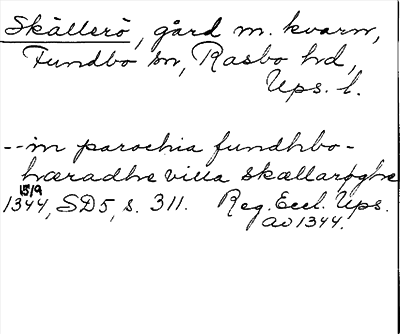 Skällerö, gård m. kvarn,
Fundbo sn, Rasbo hd,
Ups. l.
--in parochia fundhbo-
hæradhe villa skællarøghe
15/9
1344, SD5, s. 311. Reg. Eccl. Ups.
av 1344.